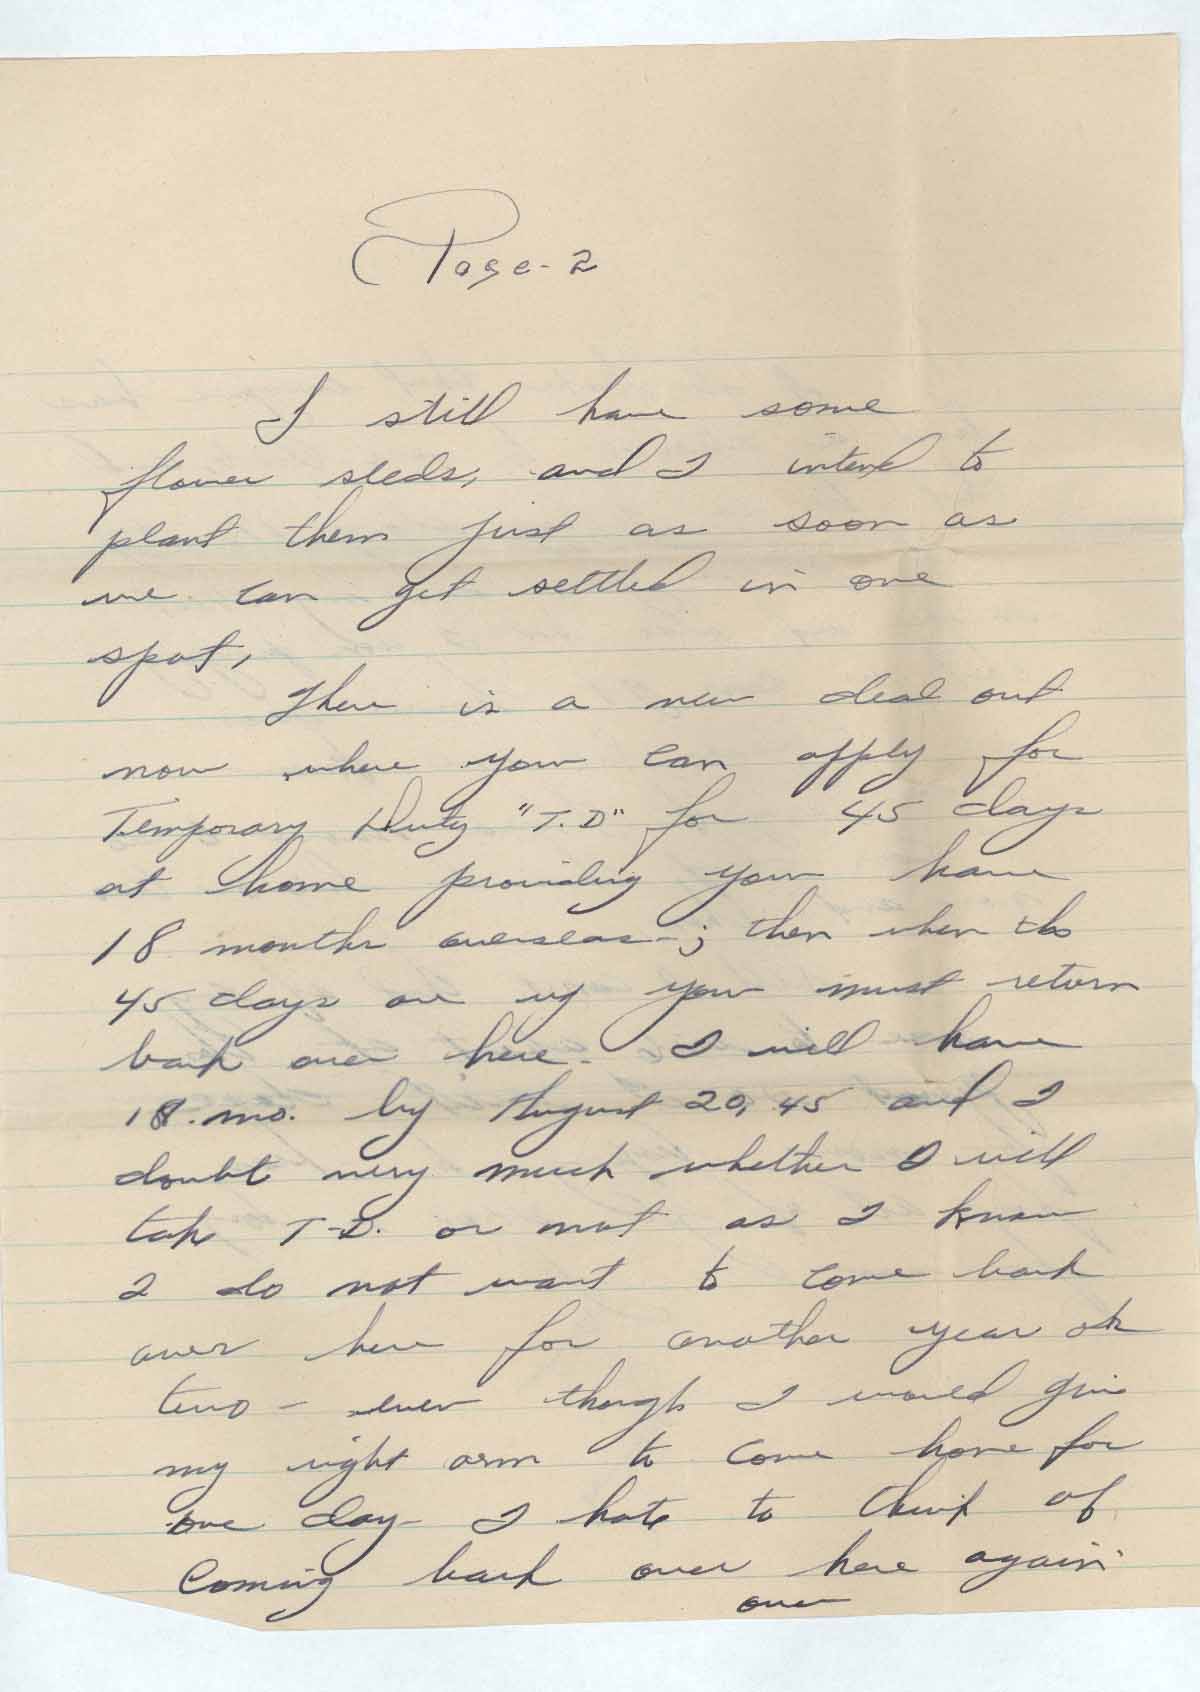 Page - 2
I still have some
flower seeds, and I intend to
plant them just as soon as
we can get settled in one
spot,
There is a new deal out
now where you can apply for
Temporary Duty "T.D" for 45 days
at home providing you have
18 months overseas-; then when the
45 days are up you must return
back over here. I will have
18. mo. by August 20, 45 and I
doubt very much whether I will
take T-D. or not as I know
I do not want to come back
over here for another year or
two - even though I would give
my right arm to come home for
one day - I hate to think of
Coming back over here again
over